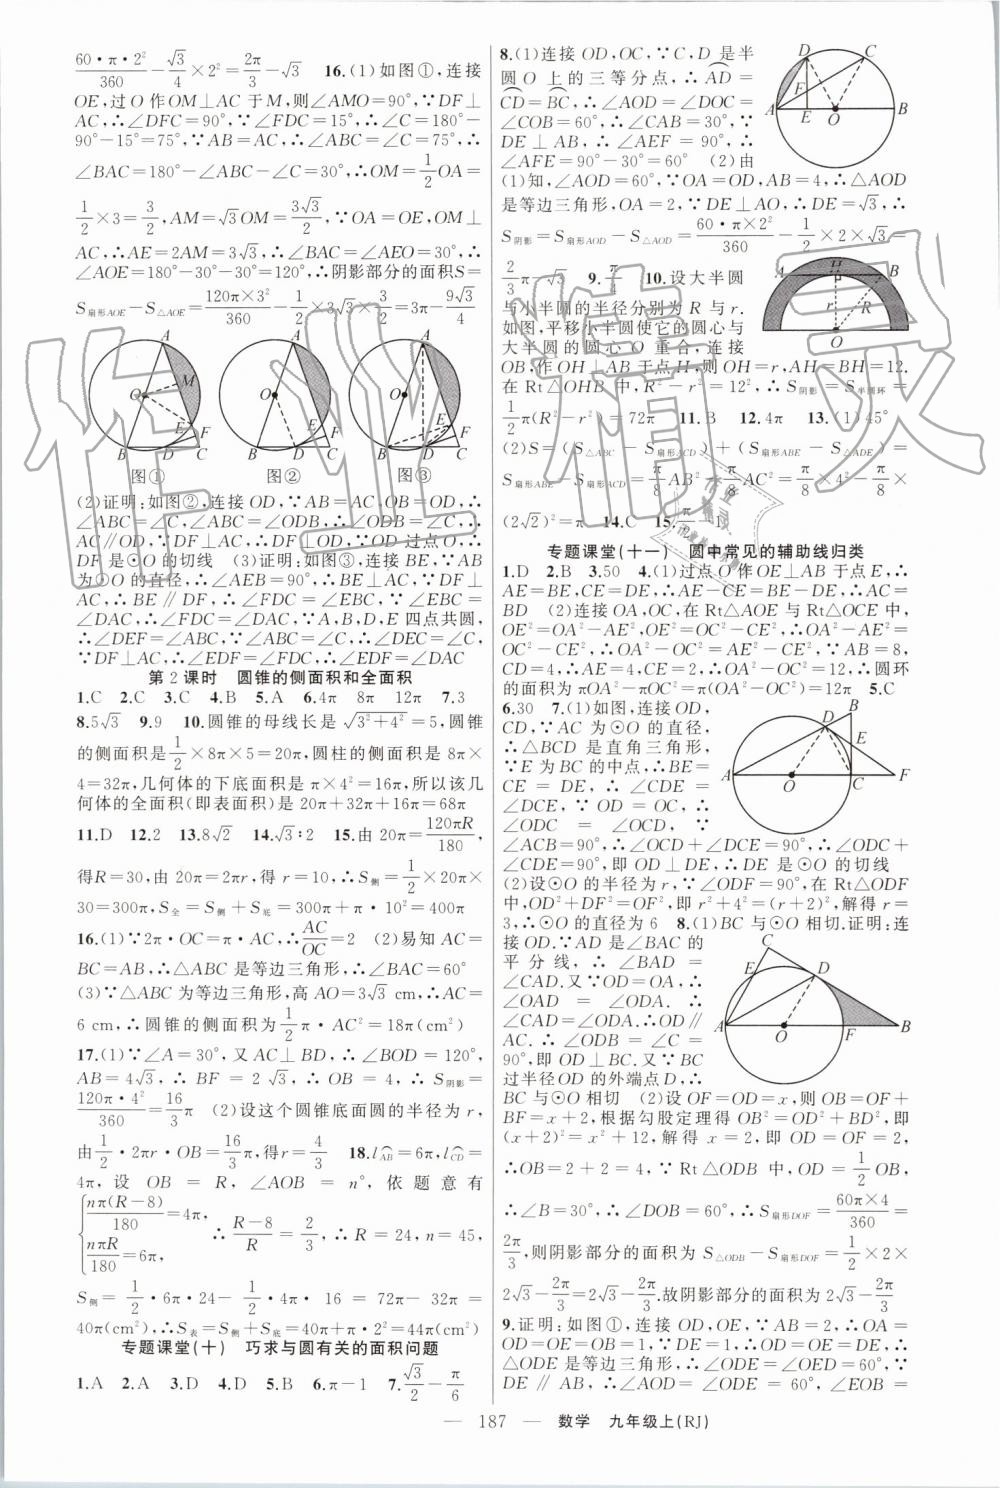 60·π·2²/360 − √3/4 × 2² = 2π/3 − √3　16.(1)如图①,连接
OE,过O作OM⊥AC于M,则∠AMO=90°,∵DF⊥
AC,∴∠DFC=90°,∵∠FDC=15°,∴∠C=180°-
90°-15°=75°,∵AB=AC,∴∠ABC=∠C=75°,∴
∠BAC=180°-∠ABC-∠C=30°,∴OM=1/2 OA=
1/2×3=3/2,AM=√3OM=3√3/2,∵OA=OE,OM⊥
AC,∴AE=2AM=3√3,∴∠BAC=∠AEO=30°,∴
∠AOE=180°-30°-30°=120°,∴阴影部分的面积S=
S扇形AOE−S△AOE=120π×3²/360−1/2×3√3×3/2=3π−9√3/4
A M O E F B D C
A O E F B D C
A O E F B D C
图① 图② 图③
(2)证明:如图②,连接OD,∵AB=AC,OB=OD,∴
∠ABC=∠C,∠ABC=∠ODB,∴∠ODB=∠C,∴
AC∥OD,∵DF⊥AC,∴DF⊥OD,∵OD过点O,∴
DF是⊙O的切线　(3)证明:如图③,连接BE,∵AB
为⊙O的直径,∴∠AEB=90°,∴BE⊥AC,∵DF⊥
AC,∴BE∥DF,∴∠FDC=∠EBC,∵∠EBC=
∠DAC,∴∠FDC=∠DAC,∵A,B,D,E四点共圆,
∴∠DEF=∠ABC,∵∠ABC=∠C,∴∠DEC=∠C,
∵DF⊥AC,∴∠EDF=∠FDC,∴∠EDF=∠DAC
第2课时　圆锥的侧面积和全面积
1.C　2.C　3.C　4.B　5.A　6.4π　8π　12π　7.3
8.5√3　9.9　10.圆锥的母线长是√(3²+4²)=5,圆锥
的侧面积是1/2×8π×5=20π,圆柱的侧面积是8π×
4=32π,几何体的下底面积是π×4²=16π,所以该几
何体的全面积(即表面积)是20π+32π+16π=68π
11.D　12.2　13.8√2　14.√3∶2　15.由20π=120πR/180,
得R=30,由20π=2πr,得r=10,∴S侧=1/2×20π×
30=300π,S全=S侧+S底=300π+π·10²=400π
16.(1)∵2π·OC=π·AC,∴AC/OC=2　(2)易知AC=
BC=AB,∴△ABC是等边三角形,∴∠BAC=60°
(3)∵△ABC为等边三角形,高AO=3√3 cm,∴AC=
6 cm,∴圆锥的侧面积为1/2π·AC²=18π(cm²)
17.(1)∵∠A=30°,又AC⊥BD,∴∠BOD=120°,
AB=4√3,∴BF=2√3,∴OB=4,∴S阴影=
120π·4²/360=16/3π　(2)设这个圆锥底面圆的半径为r,
由1/2·2πr·OB=16/3π,得r=4/3　18.l⌒AB=6π,l⌒CD=
4π,设OB=R,∠AOB=n°,依题意有
{nπ(R−8)/180=4π, nπR/180=6π, ∴(R−8)/R=2/3,∴R=24,n=45,
S侧=1/2·6π·24−1/2·4π·16=72π−32π=
40π(cm²),∴S表=S侧+S底=40π+π·2²=44π(cm²)
专题课堂(十)　巧求与圆有关的面积问题
1.A　2.A　3.D　4.D　5.B　6.π−1　7.√3/2−π/6
8.(1)连接OD,OC,∵C,D是半
圆O上的三等分点,∴⌒AD=
⌒CD=⌒BC,∴∠AOD=∠DOC=
∠COB=60°,∴∠CAB=30°,∵
DE⊥AB,∴∠AEF=90°,∴
∠AFE=90°-30°=60°　(2)由
D C F A E O B
(1)知,∠AOD=60°,∵OA=OD,AB=4,∴△AOD
是等边三角形,OA=2,∵DE⊥AO,∴DE=√3,∴
S阴影=S扇形AOD−S△AOD=60·π×2²/360−1/2×2×√3=
2/3π−√3　9.π/4　10.设大半圆
与小半圆的半径分别为R与r.
如图,平移小半圆使它的圆心与
大半圆的圆心O重合,连接
A H B r R O
OB,作OH⊥AB于点H,则OH=r,AH=BH=12.
在Rt△OHB中,R²−r²=12²,∴S阴影=S半圆环=
1/2π(R²−r²)=72π　11.B　12.4π　13.(1)45°
(2)S=(S△ABC−S扇形ACD)+(S扇形ABE−S△ADE)=
S扇形ABE−S扇形ACD=π/8AB²−π/8AC²=π/8×4²−π/8×
(2√2)²=π　14.C　15.
专题课堂(十一)　圆中常见的辅助线归类
1.D　2.B　3.50　4.(1)过点O作OE⊥AB于点E,∴
AE=BE,CE=DE,∴AE−CE=BE−DE,∴AC=
BD　(2)连接OA,OC,在Rt△AOE与Rt△OCE中,
OE²=OA²−AE²,OE²=OC²−CE²,∴OA²−AE²=
OC²−CE²,∴OA²−OC²=AE²−CE²,∵AB=8,
CD=4,∴AE=4,CE=2,∴OA²−OC²=12,∴圆环
的面积为πOA²−πOC²=π(OA²−OC²)=12π　5.C
6.30　7.(1)如图,连接OD,
CD,∵AC为⊙O的直径,
∴△BCD是直角三角形,
∵E为BC的中点,∴BE=
CE=DE,∴∠CDE=
∠DCE,∵OD=OC,∴
∠ODC=∠OCD,∵
B D E A O C F
∠ACB=90°,∴∠OCD+∠DCE=90°,∴∠ODC+
∠CDE=90°,即OD⊥DE,∴DE是⊙O的切线
(2)设⊙O的半径为r,∵∠ODF=90°,在Rt△ODF
中,OD²+DF²=OF²,即r²+4²=(r+2)²,解得r=
3,∴⊙O的直径为6　8.(1)BC与⊙O相切.证明:连
接OD.∵AD是∠BAC的
平分线,∴∠BAD=
∠CAD.又∵OD=OA,∴
∠OAD=∠ODA.∴
∠CAD=∠ODA.∴OD∥
AC.∴∠ODB=∠C=
90°,即OD⊥BC.又∵BC
C E D A O F B
过半径OD的外端点D,∴BC
与⊙O相切　(2)设OF=OD=x,则OB=OF+
BF=x+2,根据勾股定理得OB²=OD²+BD²,即
(x+2)²=x²+12,解得x=2,即OD=OF=2,
∴OB=2+2=4,∵Rt△ODB中,OD=1/2OB,
∴∠B=30°,∴∠DOB=60°,∴S扇形DOF=60π×4/360=
2π/3,则阴影部分的面积为S△ODB−S扇形DOF=1/2×2×
2√3−2π/3=2√3−2π/3.故阴影部分的面积为2√3−2π/3
9.证明:如图①,连接OD,OE,∵AB=2,∴OA=
OD=OE=OB=1,∵DE=1,∴OD=OE=DE,∴
△ODE是等边三角形,∴∠ODE=∠OED=60°,∵
DE∥AB,∴∠AOD=∠ODE=60°,∠EOB=
— 187 —　数学　九年级上(RJ)
作业精灵